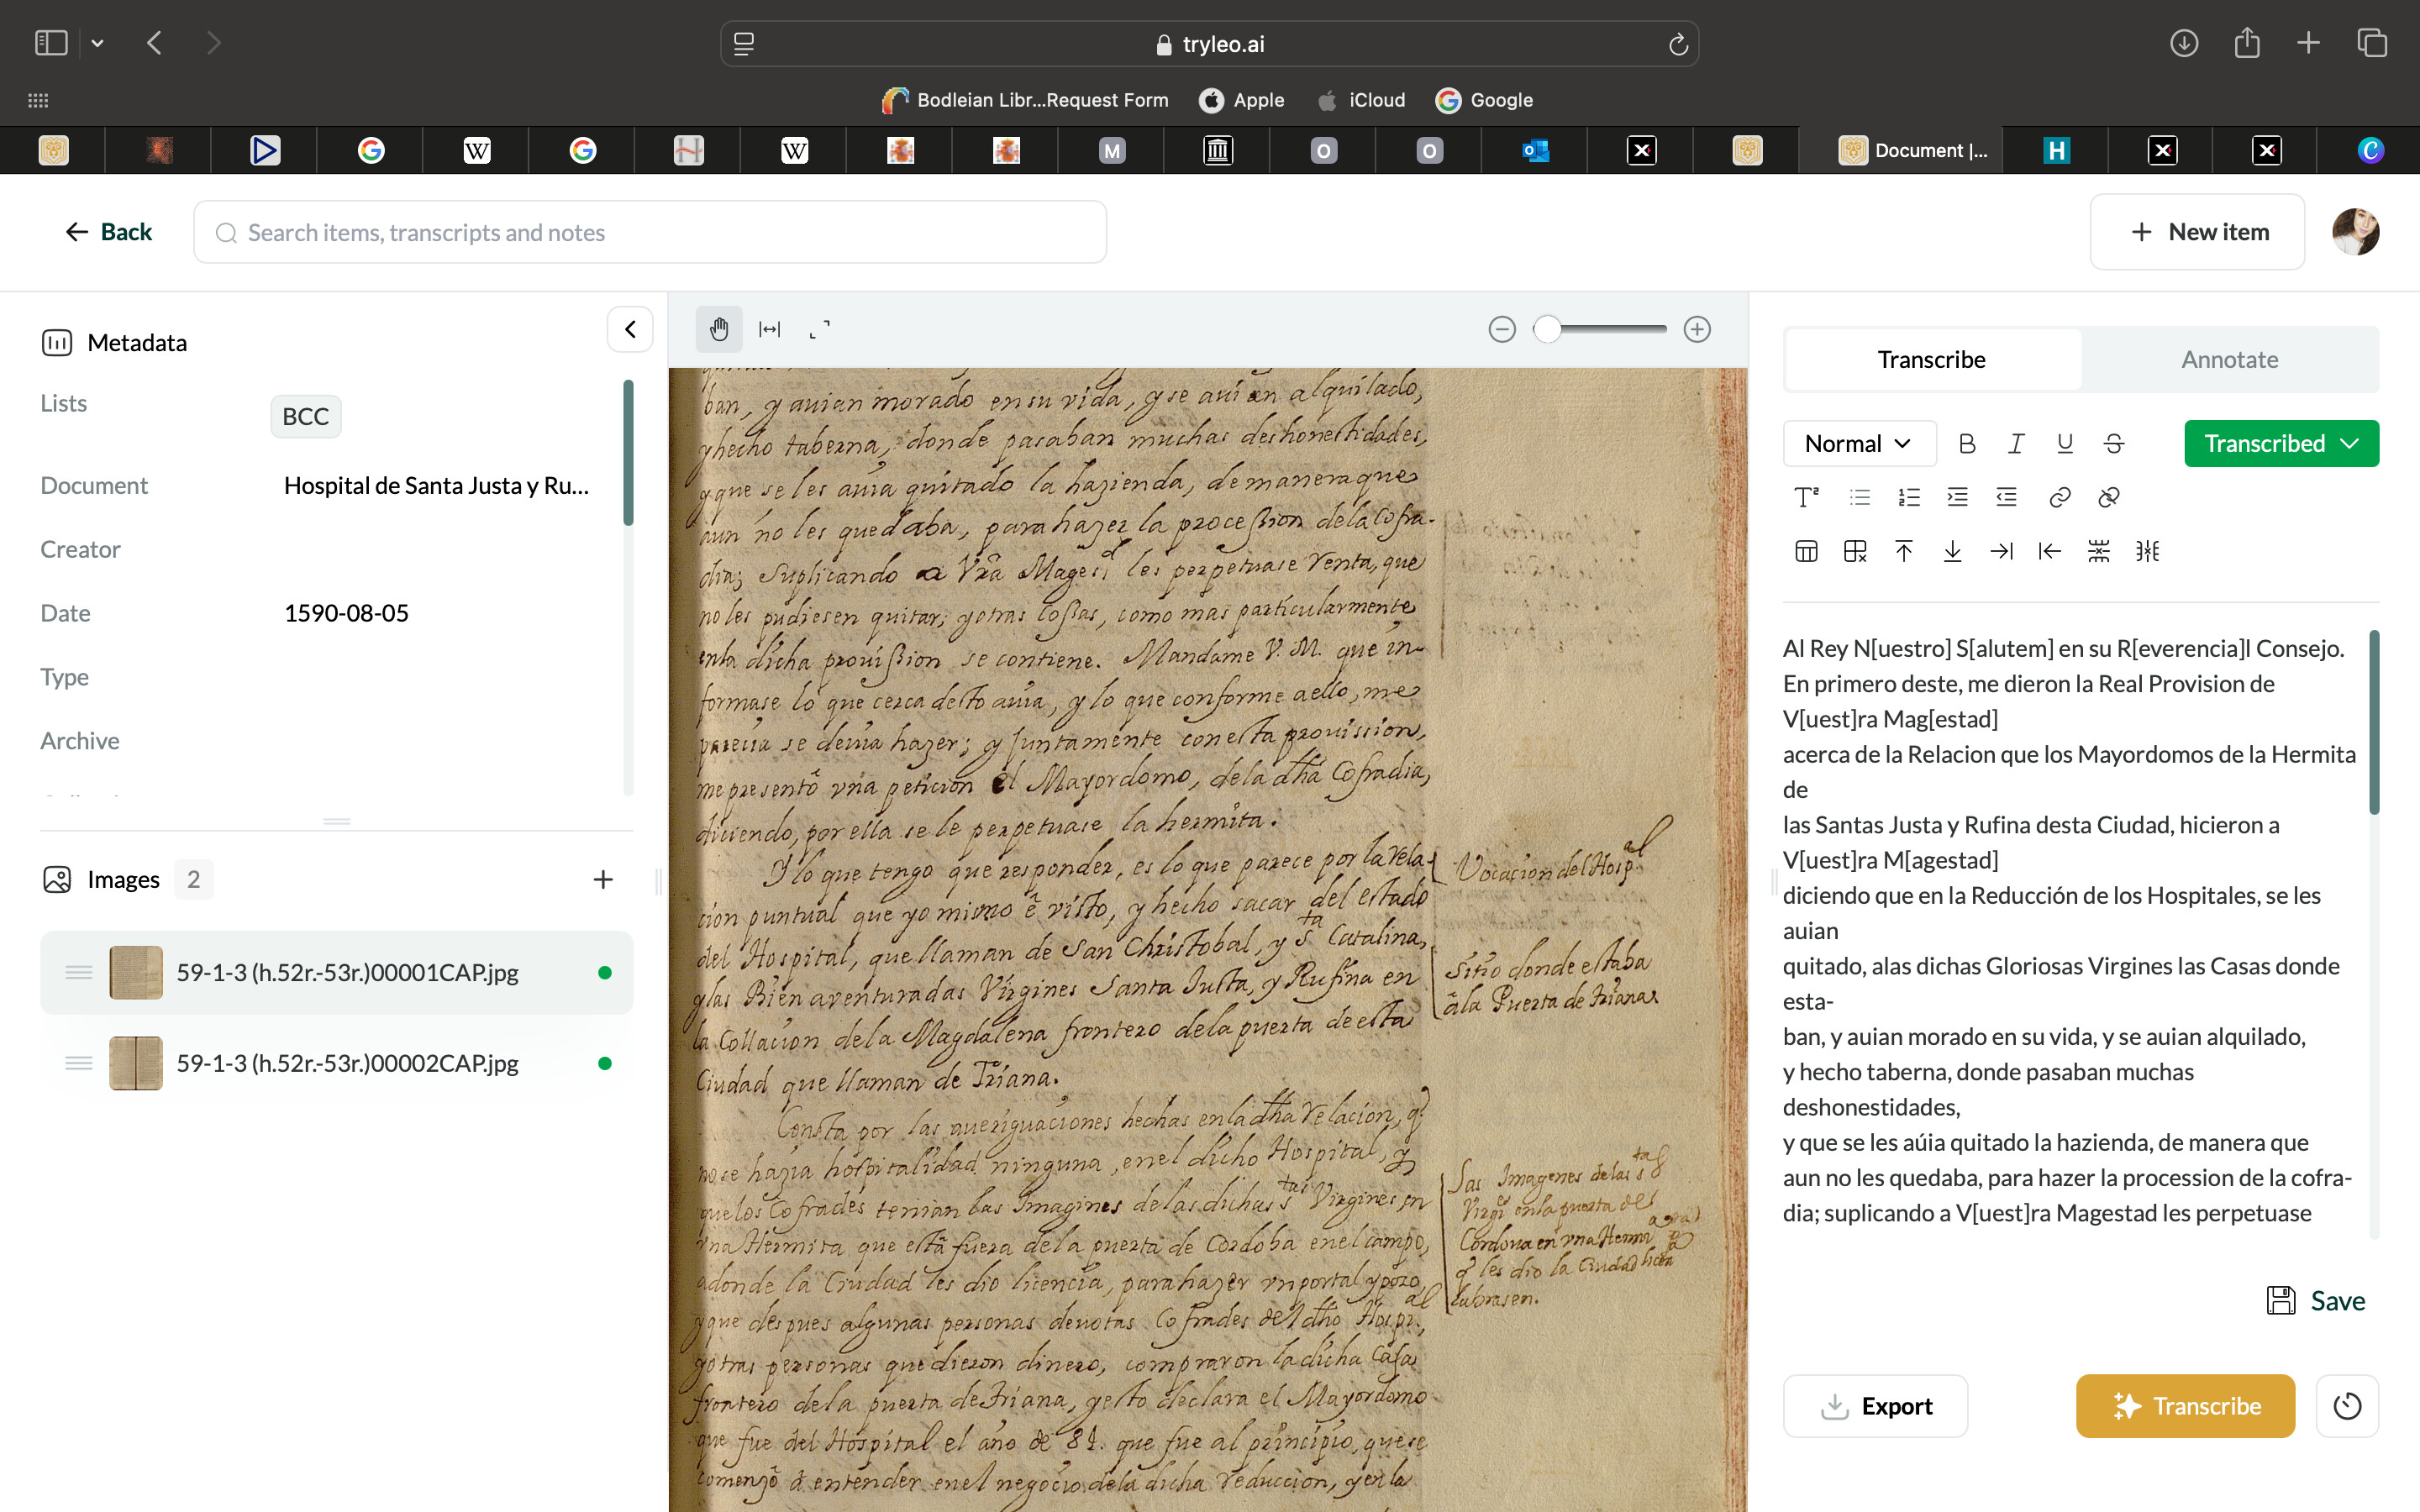 tryleo.ai
Bodleian Libr...Request Form
Apple
iCloud
Google
W
W
M
O
O
Document |...
H
Back
Search items, transcripts and notes
+ New item
Metadata
Lists
BCC
Document
Hospital de Santa Justa y Ru...
Creator
Date
1590-08-05
Type
Archive
Images 2
59-1-3 (h.52r.-53r.)00001CAP.jpg
59-1-3 (h.52r.-53r.)00002CAP.jpg
ban, y auian morado en su vida, y se auian alquilado,
y hecho taberna, donde pasaban muchas deshonestidades,
y que se les auia quitado la hazienda, de manera que
aun no les quedaba, para hazer la procession de la Cofra-
dia; Suplicando a Vra Magesd les perpetuase Renta, que
no les pudiesen quitar; y otras cossas, como mas particularmente
enla dicha prouission se contiene. Mandame V. M. que in-
formase lo que cerca desto auia, y lo que conforme aello, me
parecia se deuia hazer; y juntamente con esta prouission,
me presentó vna peticion el Mayordomo, dela dha Cofradia,
diciendo, por ella se le perpetuase la hermita.
Y lo que tengo que responder, es lo que parece por la Rela-
cion puntual que yo mismo é visto, y hecho sacar del estado
del Hospital, que llaman de San Christobal, y sta Catalina,
y las Bien aventuradas Virgines Santa Justa, y Rufina en
la Collacion dela Magdalena frontero dela puerta de esta
Ciudad que llaman de Triana.
Consta por las aueriguaciones hechas enla dha Relacion, q
no se hazia hospitalidad ninguna, enel dicho Hospital, y
que los Cofrades tenian las Imagines delas dichas stas Virgines en
vna Hermita que está fuera dela puerta de Cordoba enel campo,
adonde la Ciudad les dio licencia, para hazer vn portal y pozo,
y que despues algunas personas deuotas Cofrades del dho Hospl,
y otras personas que dieron dinero, compraron la dicha Casa
frontero dela puerta de Triana, y esto declara el Mayordomo
que fue del Hospital el año de 84. que fue al principio, que se
comenzó a entender enel negocio dela dicha reduccion, y en la
Vocacion del Hospal
Sitio donde estaba
á la Puerta de Triana
Las Imagenes delas stas
Virges enla puerta de
Cordoua en vna Hermi
q les dio la Ciudad
labrasen.
Transcribe
Annotate
Normal
B I U S
Transcribed
Al Rey N[uestro] S[alutem] en su R[everencia]l Consejo.
En primero deste, me dieron la Real Provision de
V[uest]ra Mag[estad]
acerca de la Relacion que los Mayordomos de la Hermita
de
las Santas Justa y Rufina desta Ciudad, hicieron a
V[uest]ra M[agestad]
diciendo que en la Reducción de los Hospitales, se les
auian
quitado, alas dichas Gloriosas Virgines las Casas donde
esta-
ban, y auian morado en su vida, y se auian alquilado,
y hecho taberna, donde pasaban muchas
deshonestidades,
y que se les aúia quitado la hazienda, de manera que
aun no les quedaba, para hazer la procession de la cofra-
dia; suplicando a V[uest]ra Magestad les perpetuase
Save
Export
Transcribe